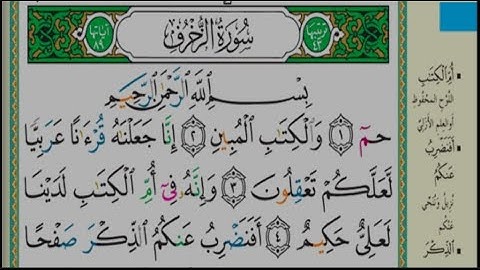 ترتيبها ٤٣
سُورَةُ الزُّخْرُفِ
آياتها ٨٩
بِسْمِ ٱللَّهِ ٱلرَّحْمَٰنِ ٱلرَّحِيمِ
حمٓ ۝١ وَٱلْكِتَٰبِ ٱلْمُبِينِ ۝٢ إِنَّا جَعَلْنَٰهُ قُرْءَٰنًا عَرَبِيًّا
لَّعَلَّكُمْ تَعْقِلُونَ ۝٣ وَإِنَّهُۥ فِىٓ أُمِّ ٱلْكِتَٰبِ لَدَيْنَا
لَعَلِىٌّ حَكِيمٌ ۝٤ أَفَنَضْرِبُ عَنكُمُ ٱلذِّكْرَ صَفْحًا
أُمِّ ٱلْكِتَٰبِ
اللَّوْحِ المحفوظ
أو العلم الأزلي
أَفَنَضْرِبُ
عَنكُمُ
نترك وننحّي
عنكم
ٱلذِّكْرَ